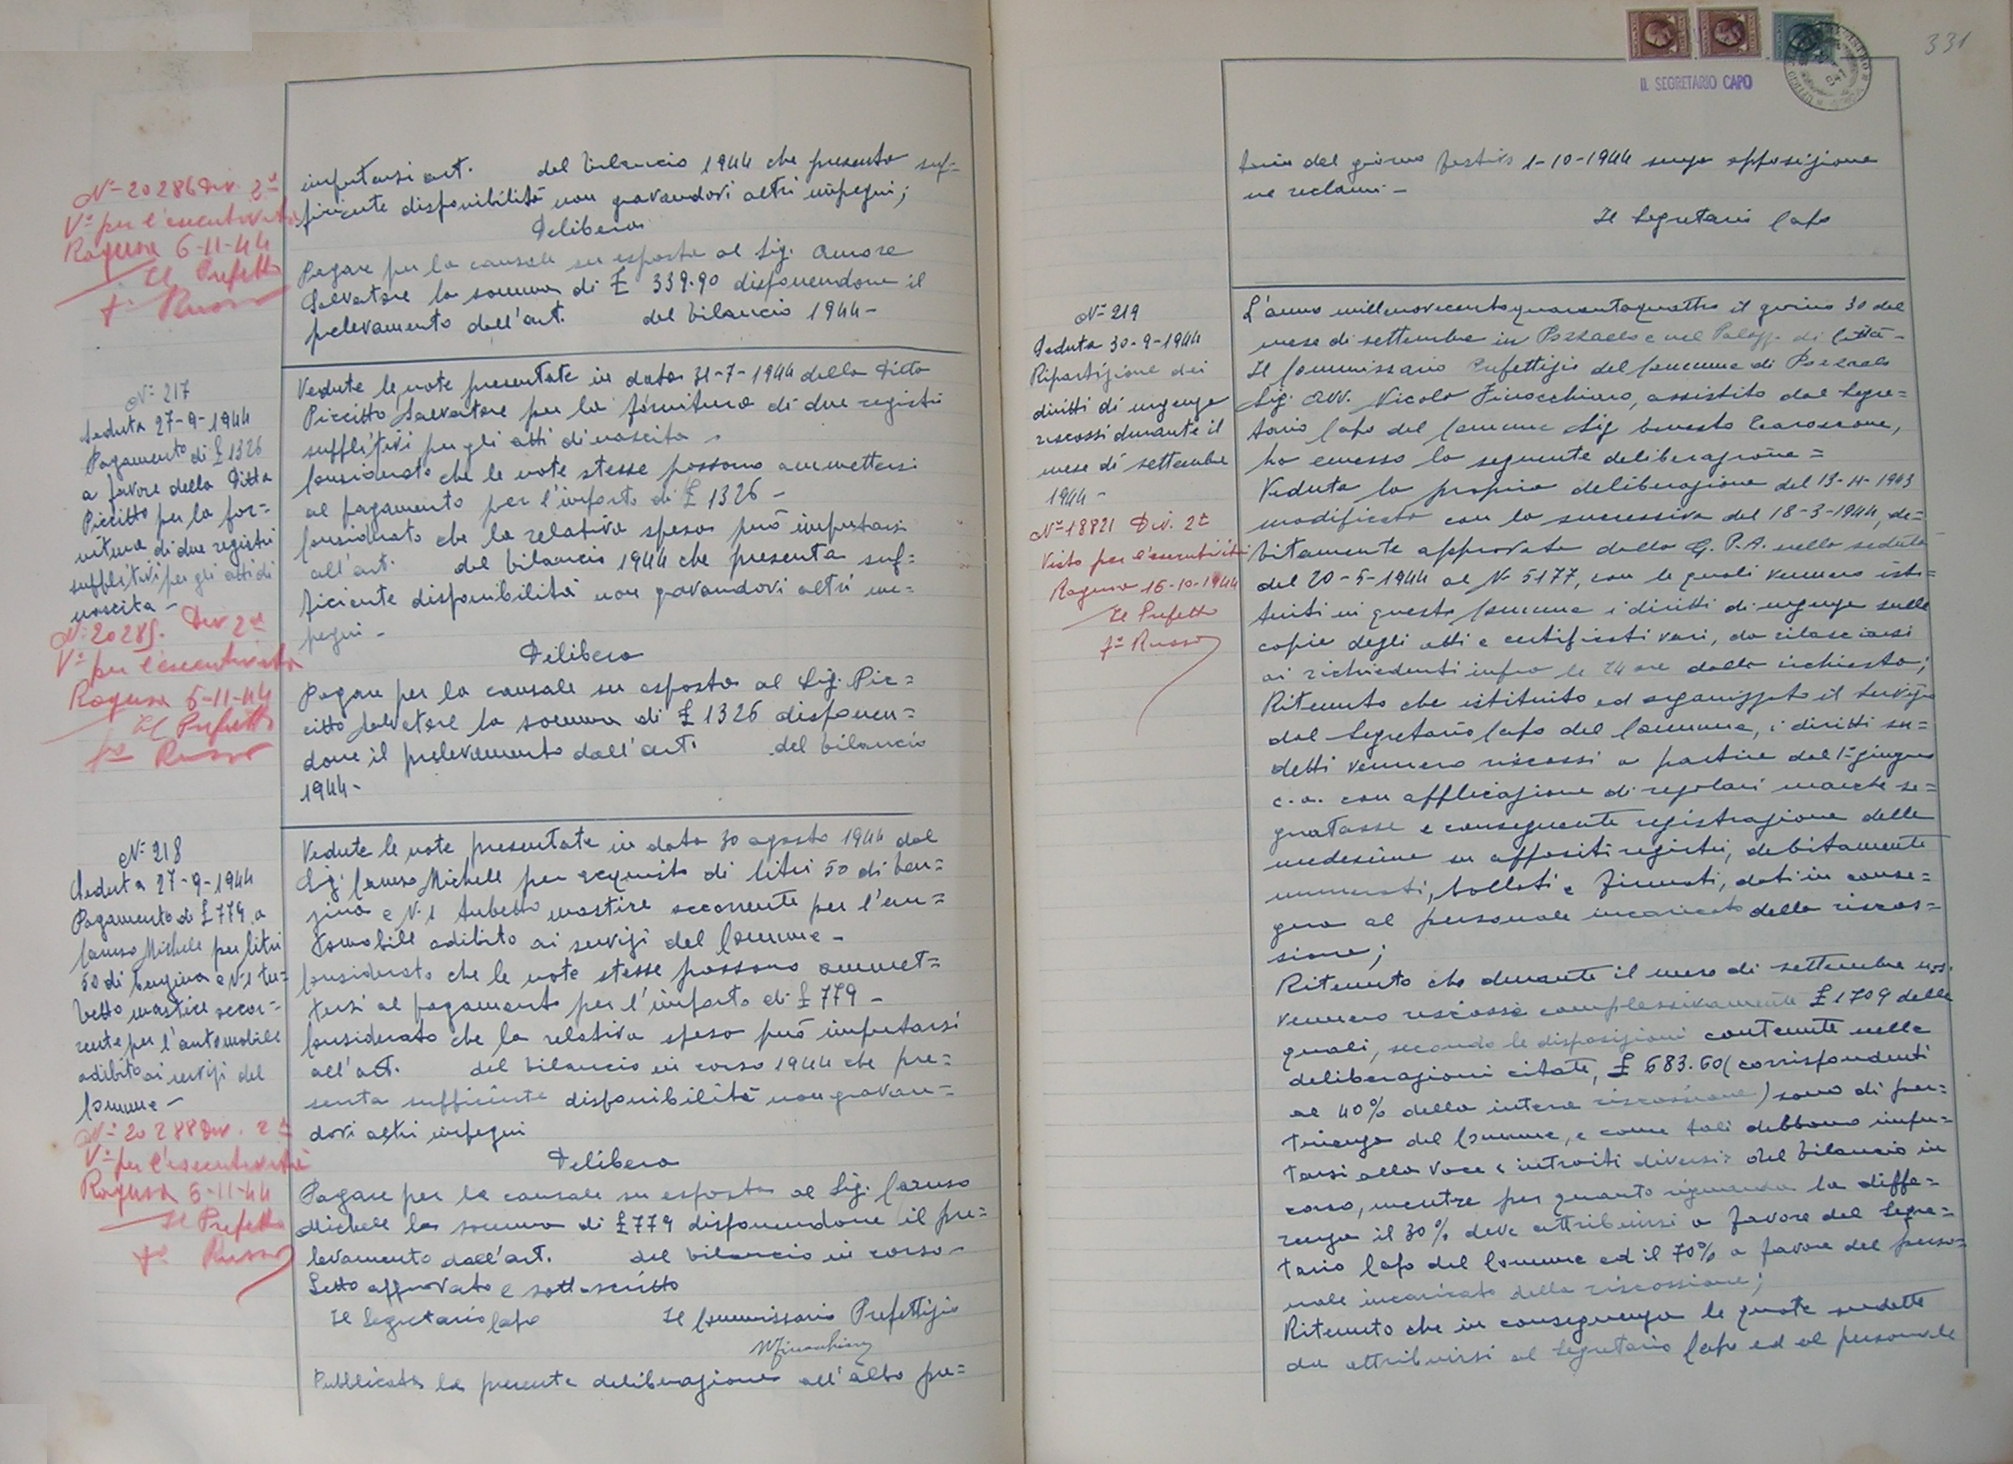 imputarsi art. del bilancio 1944 che presenta suf=
ficiente disponibilità non gravandovi altri impegni;
Delibera
Pagare per la causale su esposta al Sig. Amore
Salvatore la somma di £ 339.90 disponendone il
prelevamento dall'art. del bilancio 1944-
N° 20286 Div. 2ª
V° per l'esecutività
Ragusa 6-11-44
Il Prefetto
f° Russo
N° 217
Seduta 27-9-1944
Pagamento di £ 1326
a favore della Ditta
Piccitto per la for=
nitura di due registri
suppletivi per gli atti di
nascita -
N° 20285. Div 2ª
V° per l'esecutività
Ragusa 5-11-44
Il Prefetto
f° Russo
Vedute le note presentate in data 31-7-1944 dalla Ditta
Piccitto Salvatore per la fornitura di due registri
suppletivi per gli atti di nascita.
Considerato che le note stesse possono ammettersi
al pagamento per l'importo di £ 1326 -
Considerato che la relativa spesa può imputarsi
all'art. del bilancio 1944 che presenta suf=
ficiente disponibilità non gravandovi altri im=
pegni -
Delibera
Pagare per la causale su esposta al Sig. Pic=
citto Salvatore la somma di £ 1326 disponen=
done il prelevamento dall'art. del bilancio
1944-
N° 218
Seduta 27-9-1944
Pagamento di £ 779 a
Caruso Michele per litri
50 di benzina e N° 1 tu=
betto mastice occor=
rente per l'automobile
adibito ai servizi del
Comune -
N° 20288 Div. 2ª
V° per l'esecutività
Ragusa 6-11-44
Il Prefetto
f° Russo
Vedute le note presentate in data 30 agosto 1944 dal
Sig. Caruso Michele per acquisto di litri 50 di ben=
zina e N. 1 tubetto mastice occorrente per l'au=
tomobile adibito ai servizi del Comune -
Considerato che le note stesse possono ammet=
tersi al pagamento per l'importo di £ 779 -
Considerato che la relativa spesa può imputarsi
all'art. del bilancio in corso 1944 che pre=
senta sufficiente disponibilità non gravan=
dovi altri impegni
Delibera
Pagare per la causale su esposta al Sig. Caruso
Michele la somma di £ 779 disponendone il pre=
levamento dall'art. del bilancio in corso -
Letto approvato e sottoscritto
Il Segretario Capo Il Commissario Prefettizio
NFinocchiaro
Pubblicata la presente deliberazione all'albo pre=
331
IL SEGRETARIO CAPO
torio del giorno festivo 1-10-1944 senza opposizione
ne reclami -
Il Segretario Capo
N° 219
Seduta 30-9-1944
Ripartizione dei
diritti di urgenza
riscossi durante il
mese di settembre
1944-
N° 18821 Div. 2ª
Visto per l'esecutività
Ragusa 16-10-1944
Il Prefetto
f° Russo
L'anno millenovecentoquarantaquattro il giorno 30 del
mese di settembre in Pozzallo e nel Palazzo di Città -
Il Commissario Prefettizio del Comune di Pozzallo
Sig. Avv. Nicola Finocchiaro, assistito dal Segre=
tario Capo del Comune Sig.
ha emesso la seguente deliberazione =
Veduta la propria deliberazione del 13-11-1943
modificata con la successiva del 18-3-1944, de=
bitamente approvate dalla G.P.A. nella seduta
del 20-5-1944 al N° 5177, con le quali vennero isti=
tuiti in questo Comune i diritti di urgenza sulle
copie degli atti e certificati vari, da rilasciarsi
ai richiedenti infra le 24 ore dalla richiesta;
Ritenuto che istituito ed organizzato il servizio
dal Segretario Capo del Comune, i diritti su=
detti vennero riscossi a partire dal 1° giugno
c.a. con applicazione di regolari marche se=
gnatasse e conseguente registrazione delle
medesime su appositi registri, debitamente
numerati, bollati e firmati, dati in conse=
gna al personale incaricato della riscos=
sione;
Ritenuto che durante il mese di settembre
vennero riscosse complessivamente £ 1709 delle
quali, secondo le disposizioni contenute nelle
deliberazioni citate, £ 683.60 (corrispondenti
al 40% della intera riscossione) sono di per=
tinenza del Comune, e come tali debbono impu=
tarsi alla voce "introiti diversi" del bilancio in
corso, mentre per quanto riguarda la diffe=
renza il 30% deve attribuirsi a favore del Segre=
tario Capo del Comune ed il 70% a favore del perso=
nale incaricato della riscossione;
Ritenuto che in conseguenza le quote sudette
da attribuirsi al Segretario Capo ed al personale